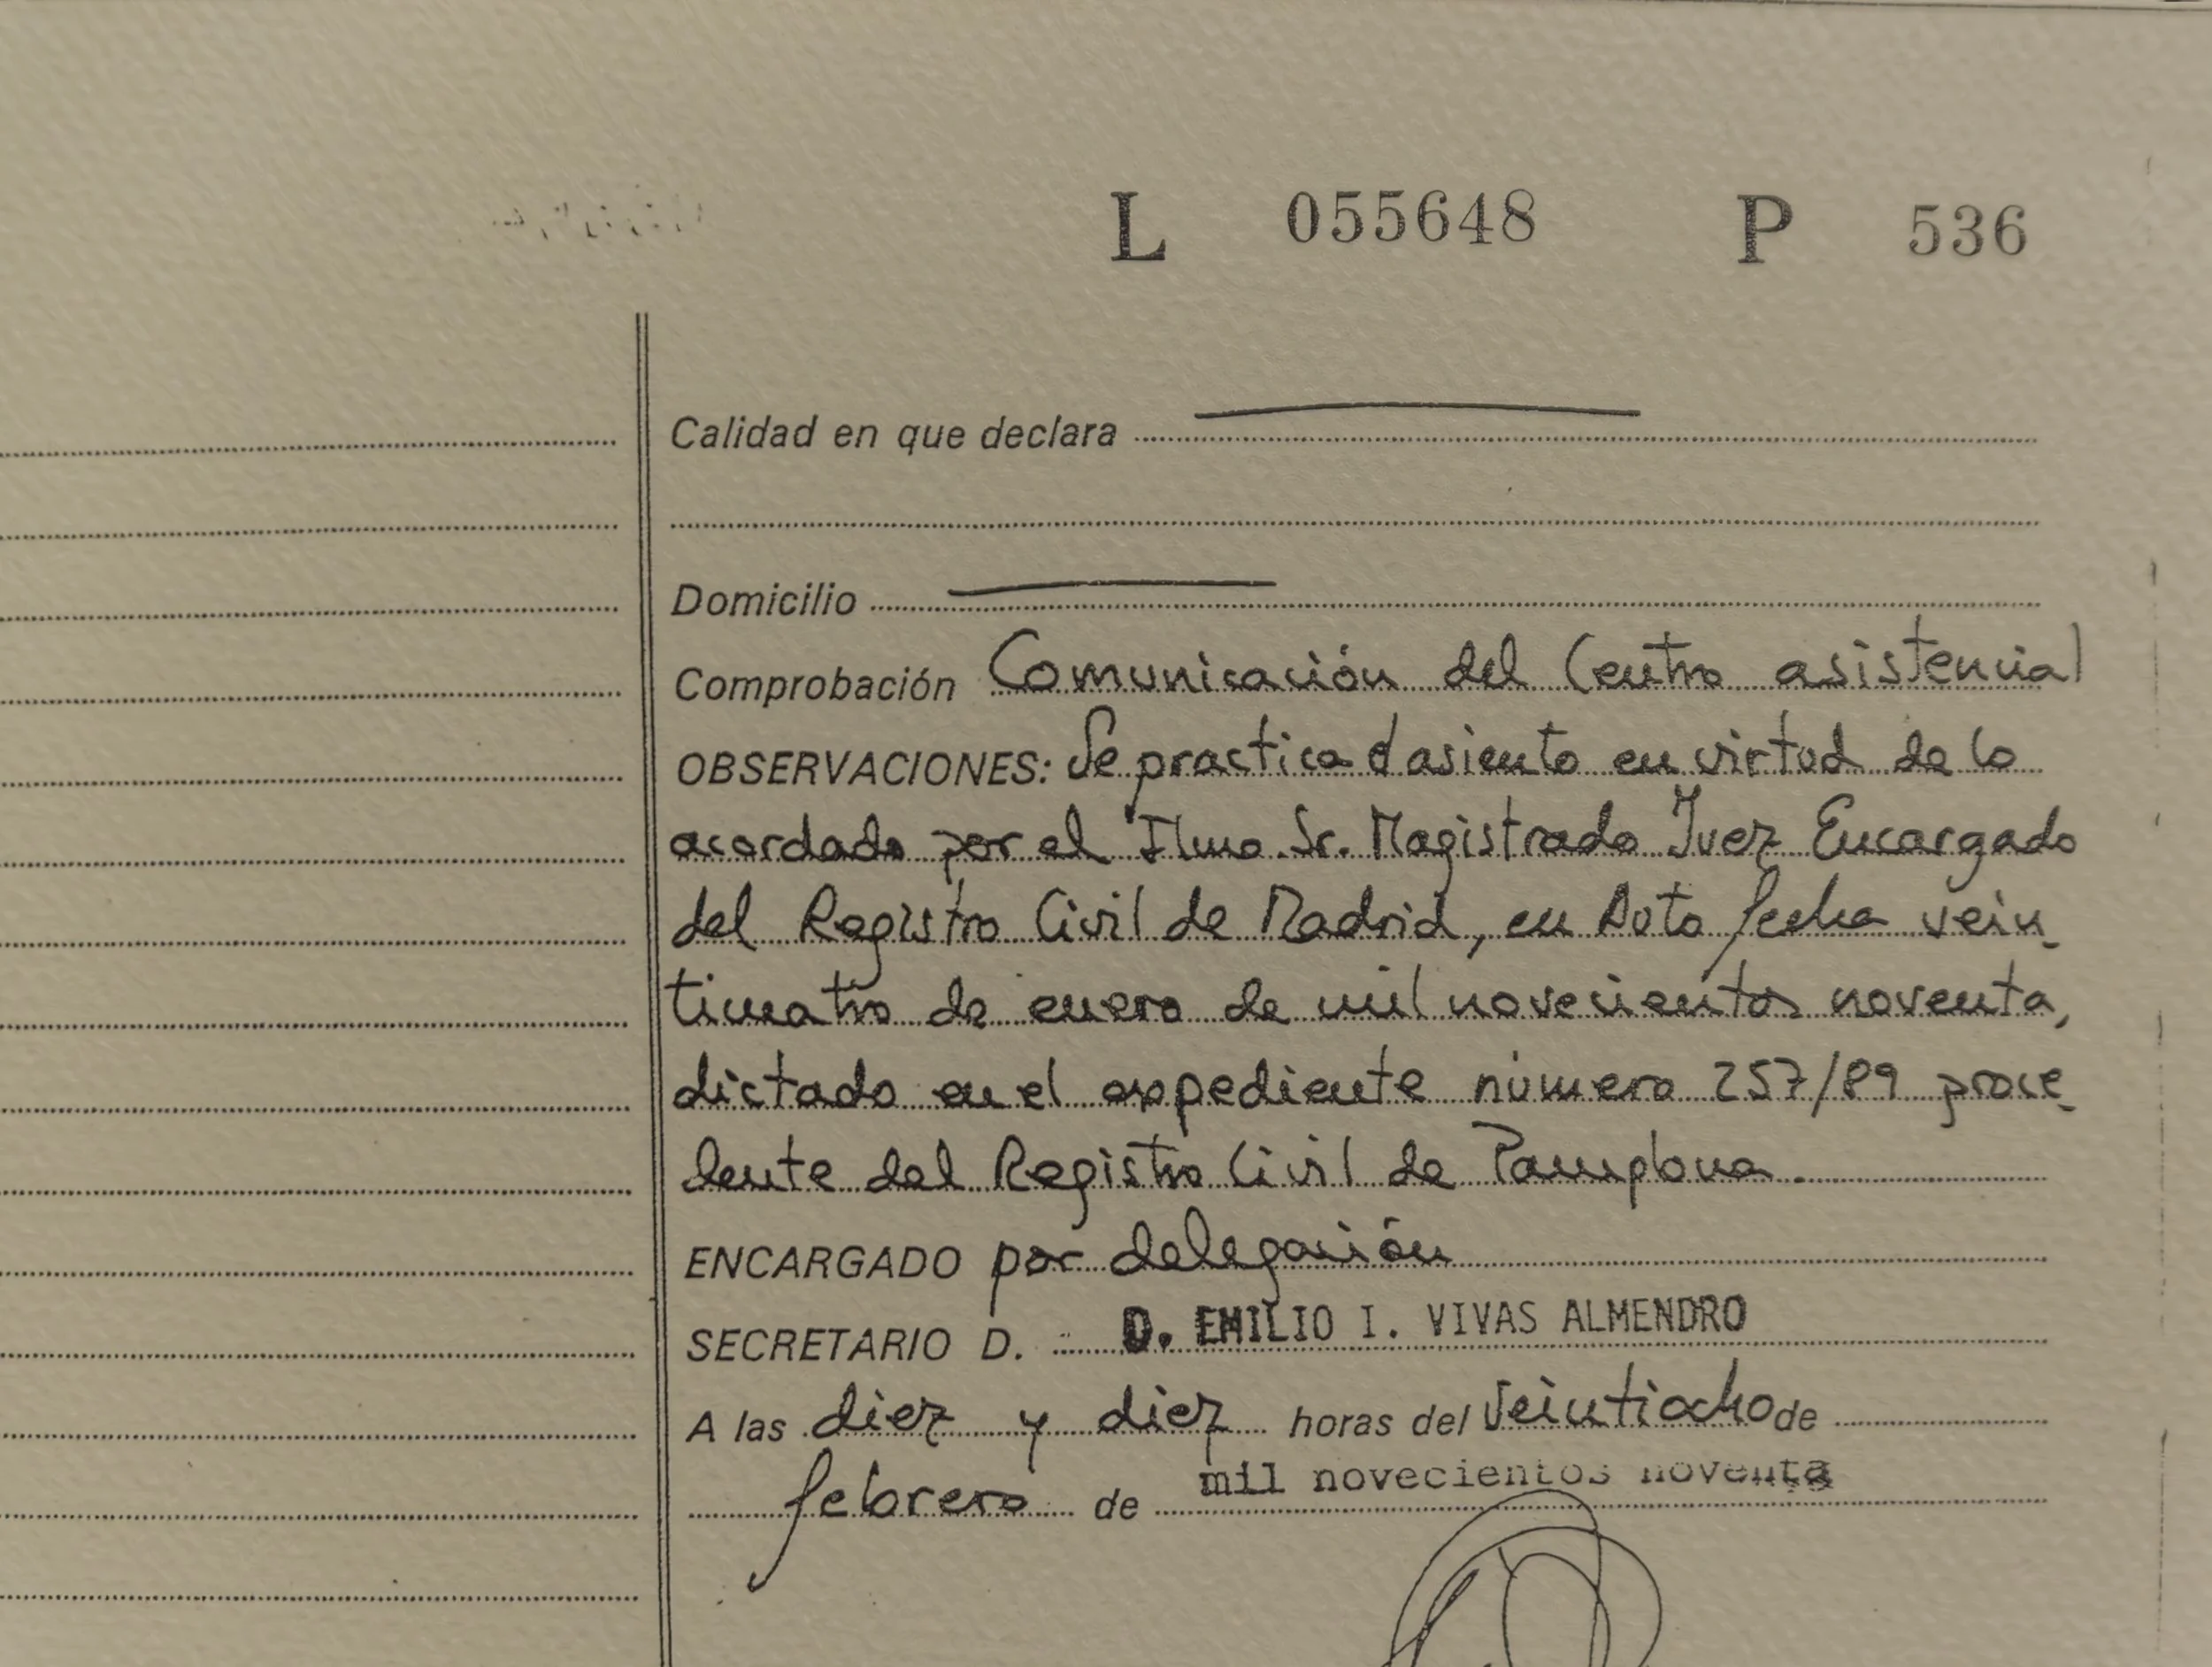 L 055648 P 536
Calidad en que declara
Domicilio
Comprobación Comunicación del Centro asistencial
OBSERVACIONES: Se practica el asiento en virtud de lo
acordado por el Ilmo. Sr. Magistrado Juez Encargado
del Registro Civil de Madrid, en Auto fecha vein
ticuatro de enero de mil novecientos noventa,
dictado en el expediente número 257/89 proce
dente del Registro Civil de Pamplona.
ENCARGADO por delegación
SECRETARIO D. D. EMILIO I. VIVAS ALMENDRO
A las diez y diez horas del veintiocho de
febrero de mil novecientos noventa